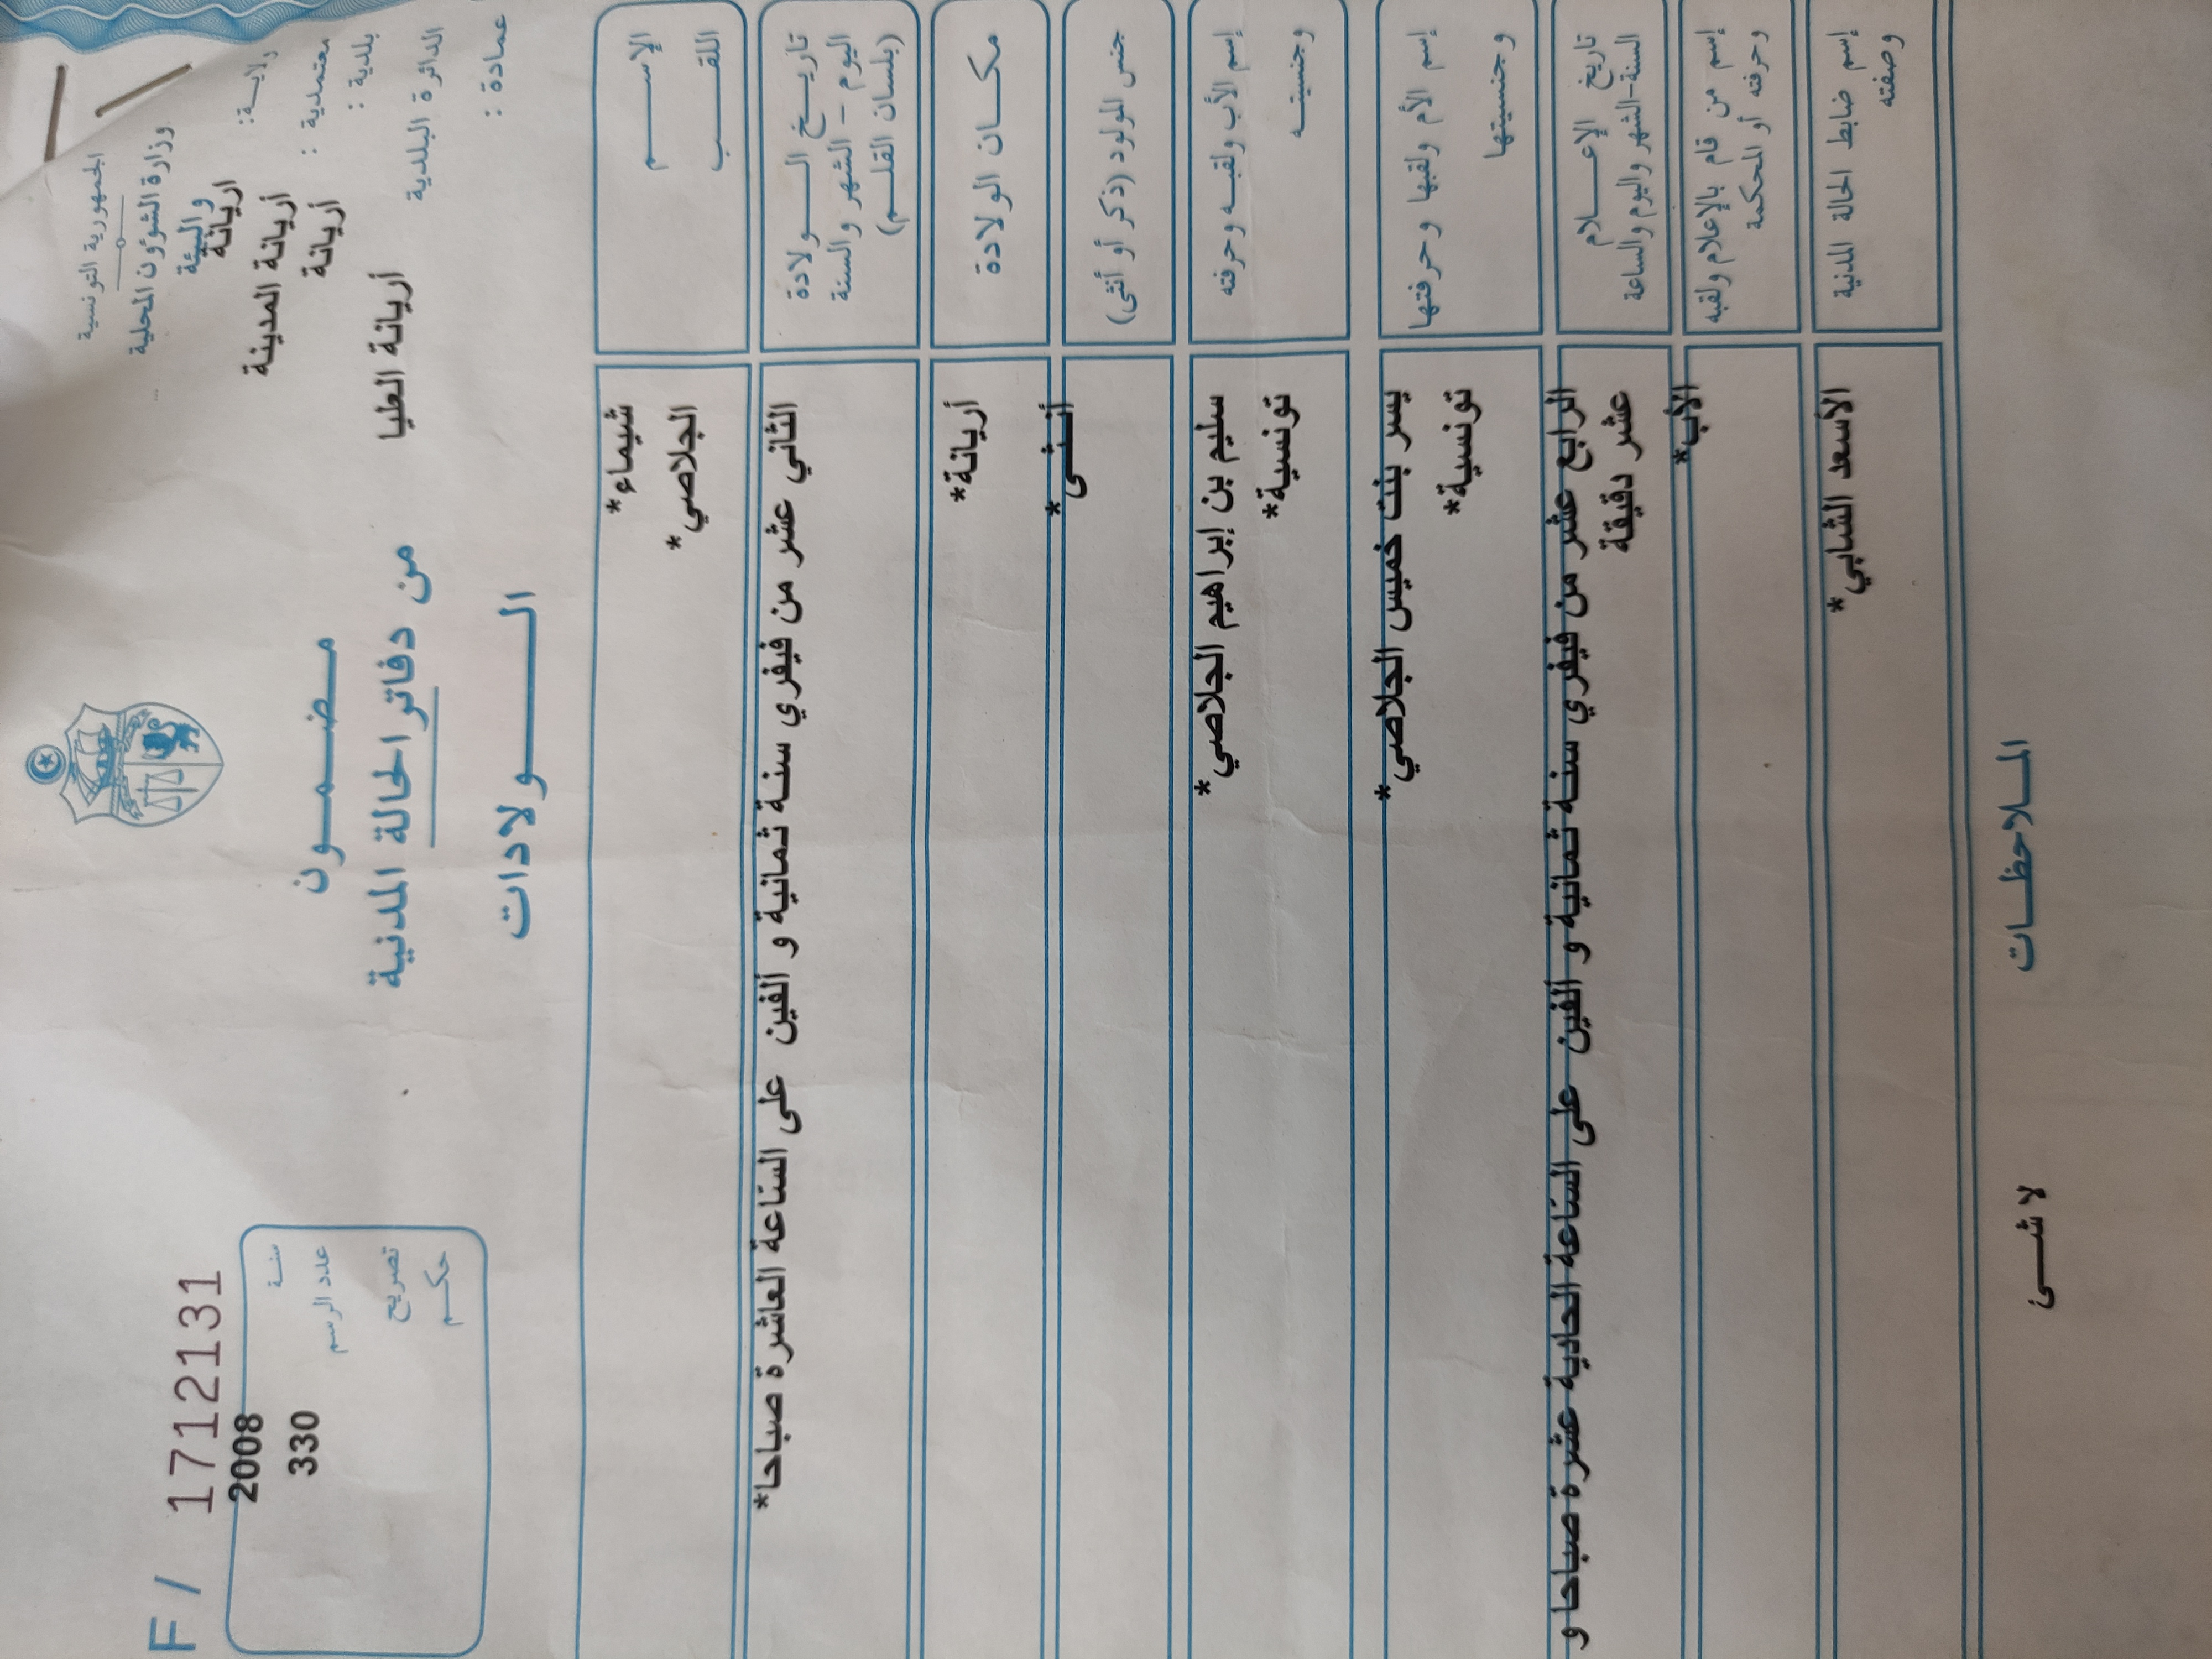 الجمهورية التونسية
وزارة الشؤون المحلية
والبيئة
ولايـة: اريانة
معتمدية : أريانة المدينة
بلدية : أريانة
الدائرة البلدية أريانة العليا
عمادة :
مـضـمـون
من دفاتر الحالة المدنية
الـولادات
F / 1712131
سنـة 2008
عدد الرسم 330
تصريح
حكـم
الإسـم شيماء*
اللقـب الجلاصي*
تاريـخ الـولادة الثاني عشر من فيفري سنة ثمانية و ألفين على الساعة العاشرة صباحا*
اليوم – الشهر والسنة
(بلسان القلـم)
مكـان الولادة أريانة*
جنس المولود (ذكر أو أنثى) أنـثى*
إسم الأب ولقبـه وحرفته سليم بن إبراهيم الجلاصي*
وجنسيتـه تونسية*
إسم الأم ولقبها وحرفتها يسر بنت خميس الجلاصي*
وجنسيتها تونسية*
تاريخ الإعـلام الرابع عشر من فيفري سنة ثمانية و ألفين على الساعة الحادية عشرة صباحا و
السنة-الشهر واليوم والساعة عشر دقيقة
إسم من قام بالإعلام ولقبه الأب*
وحرفته أو المحكمة
إسم ضابط الحالة المدنية الأسعد الشابي*
وصفته
المـلاحظـات
لا شـئ